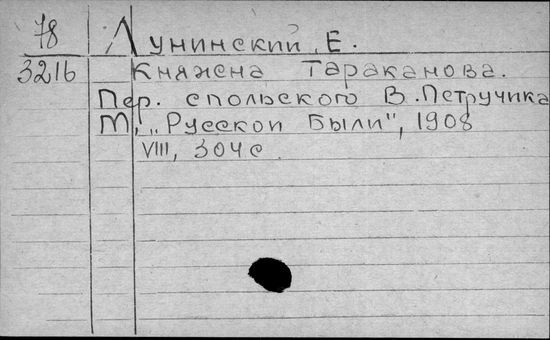 78 Лунинский, Е.
3216 Княжена Тараканова.
Пер. спольского В. Петручика
М, „Русской Были", 1908
VIII, 304 с.